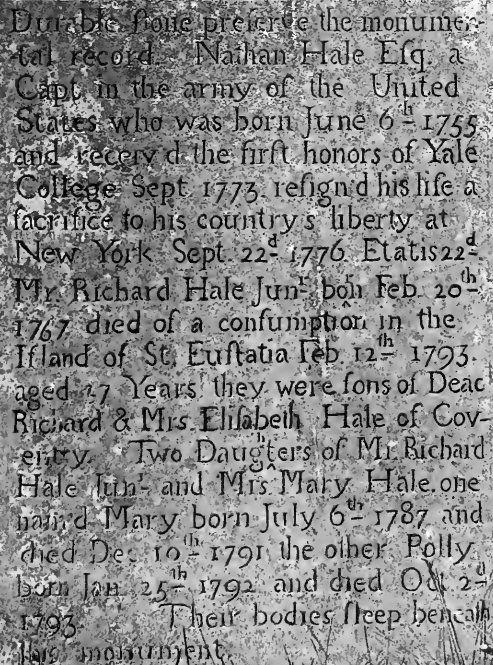 Durable ſtone preſerve the monumen-
tal record. Nathan Hale Eſq. a
Capt. in the army of the United
States who was born June 6th 1755
and receiv'd the firſt honors of Yale
College Sept. 1773. reſign'd his life a
ſacrifice to his country's liberty at
New York Sept. 22d 1776. Etatis 22d.
Mr. Richard Hale Junr. born Feb. 20th
1767 died of a conſumption in the
Iſland of St. Euſtatia Feb. 12th 1793.
aged 27 Years, they were ſons of Deac
Richard & Mrs. Eliſabeth Hale of Cov-
entry. Two Daughters of Mr. Richard
Hale Junr. and Mrs. Mary Hale. one
nam'd Mary born July 6th 1787 and
died Dec. 19th 1791 the other Polly
born Jan. 25th 1792 and died Oct 2d
1793. Their bodies ſleep beneath
this monument.